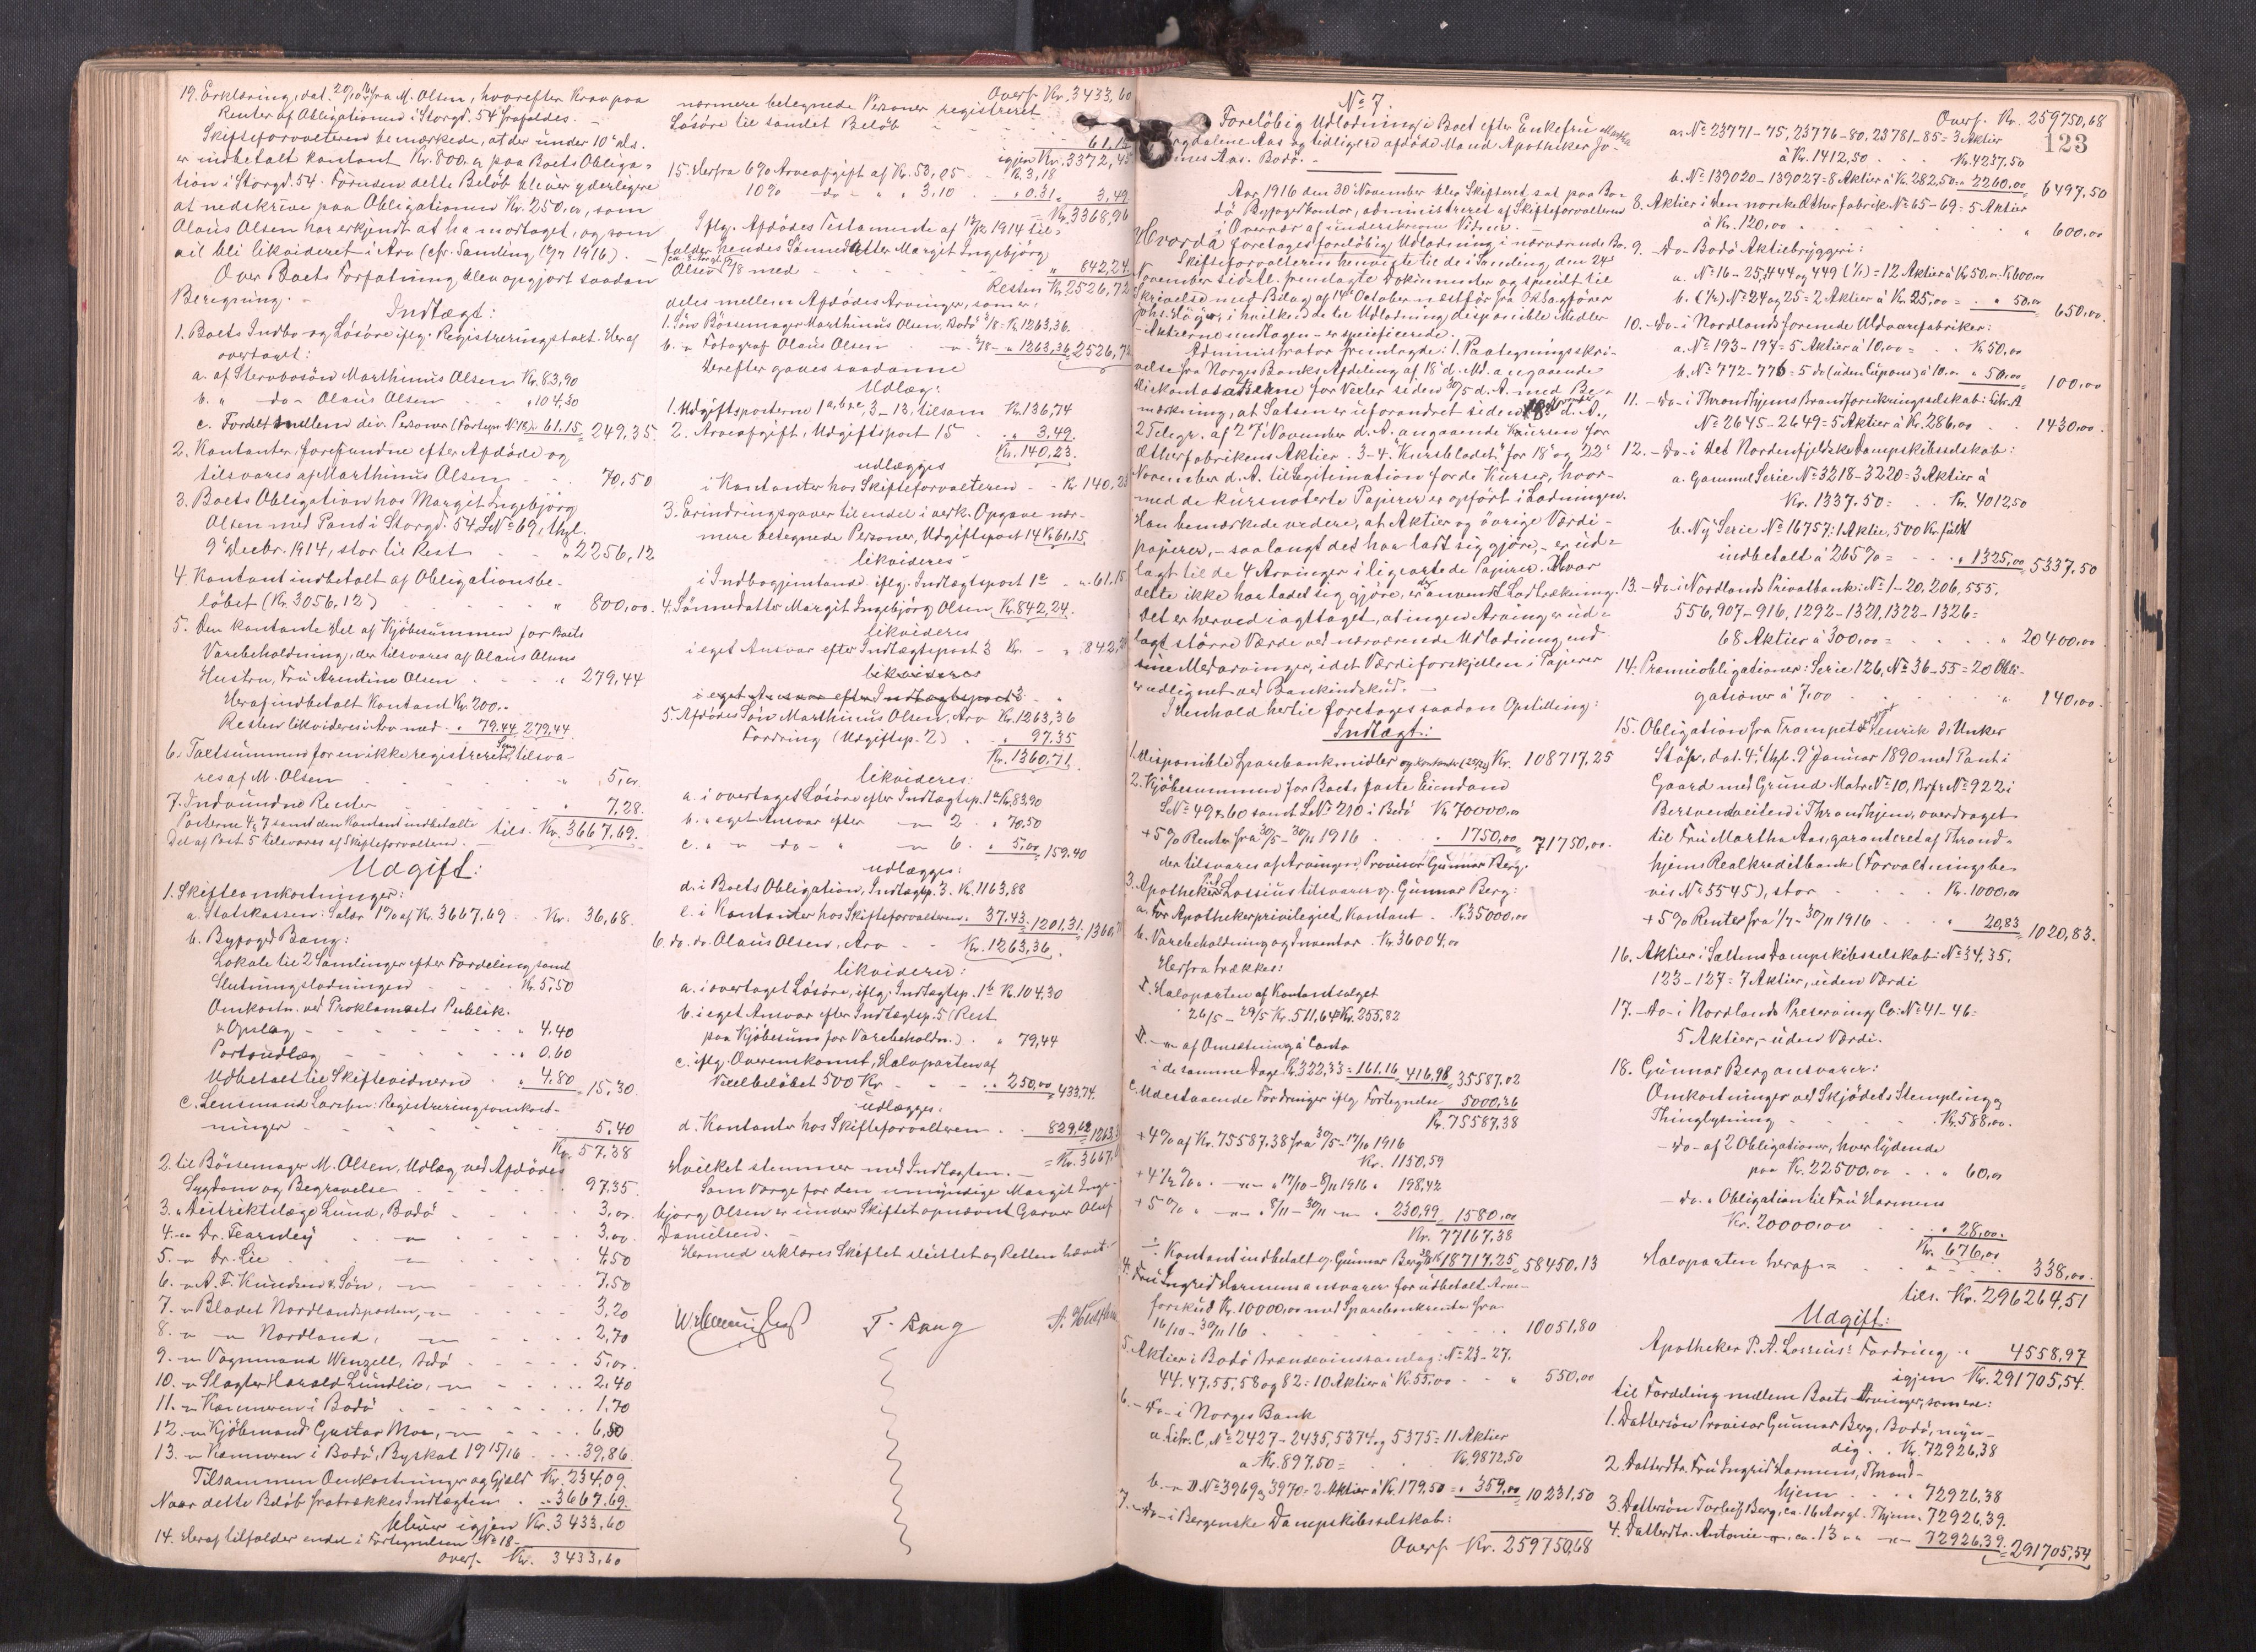 19. Erklæring, dat. 20/10 16 fra M. Olsen, hvorefter Krav paa
Renter af Obligationen i Storgd. 54 frafaldes. -
Skifteforvalteren bemærkede, at der under 10' ds.
er indbetalt kontant Kr. 800.00 paa Boets Obliga-
tion i Storgd. 54. Foruden dette Beløb bliver yderligere
at nedskrive paa Obligationen Kr. 250.00, som
Olaus Olsen har erkjendt at ha modtaget, og som
vil bli likvideret i Arv (cfr. Samling 1916). -
Over Boets Forfatning blev opgjort saadan
Beregning. -
Indtægt:
1. Boets Indbo og Løsøre iflg. Registreringstaxt. Heraf
overtaget:
a. af Stervbosøn Marthinus Olsen Kr. 83,90
b. " do - Olaus Olsen " 104,30
c. Fordelt mellem div. Personer (Fortegn. No 18) " 61,15 = 249,35.
2. Kontanter, forefundne efter Afdøde og
tilsvares af Marthinus Olsen - - 70,50
3. Boets Obligation hos Margit Ingebjørg
Olsen med Pant i Storgd. 54 L No 69, thgl.
9' Decbr. 1914, stor til Rest - - " 2256,12
4. Kontant indbetalt af Obligationsbe-
løbet (Kr. 3056,12) " 800,00.
5. Den kontante Del af Kjøbesummen for Boets
Varebeholdning, der tilsvares af Olaus Olsens
Hustru, Fru Arentine Olsen " 279,44
Heraf indbetalt Kontant Kr. 200.-
Resten likvideres i Arv med " 79,44 279,44
6. Taxtsummen for en ikke registreret Seng, tilsva-
res af M. Olsen " 5,00
7. Indvundne Renter " 7,28.
Posterne 4, 7 samt den Kontant indbetalte
Del af Post 5 tilsvares af Skifteforvalteren. tils. Kr. 3667,69.
Udgift:
1. Skifteomkostninger:
a. Statskassen: Salær 1% af Kr. 3667,69 - Kr. 36,68.
b. Byfoged Bang:
Lokale til 2 Samlinger efter Fordeling samt
Slutningslodningen Kr. 5,50
Omkostn. ved Proklamaets Publik.
& Opslag - " 4,40
Portoudlæg " 0,60
Udbetalt til Skiftevidnerne " 4,80 = 15,30.
c. Lensmand Larssen: Registreringsomkost-
ninger 5,40
Kr. 57,38
2. til Børsemager M. Olsen, Udlæg ved Afdødes
Sygdom og Begravelse 97,35.
3. " Distriktslæge Lund, Bodø 3,00.
4. " Dr. Fearnley " 3,00
5. " Dr. Lie " 4,50
6. " A. F. Knudsen & Søn, " 7,50
7. " Bladet Nordlandsposten, " 3,20
8. " " Nordland, " 2,70
9. " Vognmand Wenzell, Bodø 5,00.
10. " Slagter Harald Lundlie, " 2,40
11. " Kæmneren i Bodø 1,70
12. " Kjøbmand Gustav Moe, " 6,50
13. " Kæmneren i Bodø, Byskat 1915/16 39,86.
Tilsammen Omkostninger og Gjæld Kr. 234,09.
Naar dette Beløb fratrækkes Indtægten " 3667,69.
bliver igjen Kr. 3433,60
14. Heraf tilfalder endel i Fortegnelsen No 18 -
Overf. Kr. 3433,60
Overf. Kr. 3433,60
nærmere betegnede Personer registreret
Løsøre til samlet Beløb - 61,15
igjen Kr. 3372,45
15. Herfra 6% Arveafgift af Kr. 53,05 Kr. 3,18
10% do " " 3,10 " 0.31 = 3,49
Kr. 3368,96
Iflg. Afdødes Testamente af 1914 til-
falder hendes Sønnedatter Margit Ingebjørg
Olsen 2/8 med " 842,24
Resten Kr. 2526,72
deles mellem Afdødes Arvinger, som er:
1. Søn Børsemager Marthinus Olsen, Bodø 3/8 = Kr. 1263,36.
b. " Fotograf Olaus Olsen " 3/8 - " 1263,36 2526,72
Herefter gaves saadanne
Udlæg:
1. Udgiftsposterne 1 a, b & c, 3 - 13, tilsam. Kr. 136,74
2. Arveafgift, Udgiftspost 15 " 3,49.
Kr. 140,23.
udlægges
i Kontanter hos Skifteforvalteren - Kr. 140,23
3. Erindringsgaver til endel i verk. Opgave nær-
mere betegnede Personer, Udgiftspost 14 Kr. 61,15
likvideres
i Indbogjenstande iflg. Indtægtspost 1c " 61,15
4. Sønnedatter Margit Ingebjørg Olsen, Kr. 842,24.
likvideres
i eget Ansvar efter Indtægtspost 3 Kr. - " 842,24
likvideres
i eget Ansvar efter Indtægtspost 3
5. Afdødes Søn Marthinus Olsen, Arv Kr. 1263,36
Fordring (Udgiftsp. 2) " 97.35
Kr. 1360,71
likvideres:
a. i overtaget Løsøre efter Indtægtsp. 1a Kr. 83,90
b. " eget Ansvar efter " 2 " 70,50
c. " " do - " " 6. " 5,00 = 159.40
udlægges:
d. i Boets Obligation, Indtægtsp. 3. Kr. 1163,88
e. i Kontanter hos Skifteforvalteren " 37.43 = 1201.31 = 1360,71
6. do. do. Olaus Olsen, Arv - Kr. 1263,36.
likvideres:
a. i overtaget Løsøre, iflg. Indtægtsp. 1b Kr. 104,30
b. i eget Ansvar efter Indtægtsp. 5 (Rest
paa Kjøbesum for Varebeholdn.) " 79,44
c. iflg. Overenskomst, Halvparten af
Vexelbeløbet 500 Kr - " 250,00 = 433,74.
udlægges:
d. Kontanter hos Skifteforvalteren " 829,62 = 1263,3
Hvilket stemmer med Indtægten. - = Kr. 3667,
Som Værge for den umyndige Margit Inge-
bjørg Olsen er under Skiftet opnævnt Garver Oluf
Danielsen. -
Hermed erklæres Skiftet sluttet og Retten hævet. -
F. Bang
No 7.
Foreløbig Udlodning i Boet efter Enkefru Martha
Magdalene Aas og tidligere afdøde Mand Apotheker Jo-
Aas. Bodø. -
Aar 1916 den 30' November blev Skifteret sat paa Bo-
dø Byfogedkontor, administreret af Skifteforvalteren
i Overvær af underskrevne Vidner. -
Hvorda foretages foreløbig Udlodning i nærværende Bo.
Skifteforvalteren henviste til de i Samling den 24'
November sidstl. fremlagte Dokumenter og specielt til
Skrivelse med Bilag af 14' October næstfør fra Sagfører
Joh. Høyer, i hvilken de til Udlodning disponible Midler
- Aktierne undtagen - er specificerede. -
Administrator fremlagde: 1. Paategningsskri-
velse fra Norges Banks Afdeling af 18' d. Md. angaaende
Diskontosatserne for Vexler siden 30/5 d. A. med Be-
mærkning, at Satsen er uforandret siden 8' November d. A.,
2 Telegr. af 27' November d. A. angaaende Kursen for
Ætherfabrikens Aktier. 3 - 4. "Kursbladet" for 18' og 22'
November d. A. til Legitimation for de Kurser, hvor-
med de kursnoterte Papirer er opført i Lodningen.
Han bemærkede videre, at Aktier og øvrige Værdi-
papirer, - saalangt det har latt sig gjøre, - er ud-
lagt til de 4 Arvinger i ligeartede Papirer. Hvor
dette ikke har ladet sig gjøre, er der anvendt Lodtrækning.
Det er herved iagttaget, at ingen Arving er ud-
lagt større Værde ved nærværende Udlodning end
sine Medarvinger, idet Værdiforskjellen i Papirer
er udlignet ved Bankindskud. -
I Henhold hertil foretages saadan Opstilling:
Indtægt:
1. Disponible Sparebankmidler og Kontanter Kr. 108717,25
2. Kjøbesummen for Boets faste Eiendom
L No 49 & 60 samt L No 210 i Bodø Kr. 70000,00
+ 5% Renter fra 30/5 - 30/11 1916 " 1750,00 = 71750,00.
der tilsvares af Arvingen, Provisor Gunnar Berg.
3. Apotheker P. A. Lossius tilsvarer og Gunnar Berg:
a. For Apothekerprivilegiet, Kontant - Kr. 35000,00
b. Varebeholdning og Inventar Kr. 36004,00
Herfra trækkes:
I. Halvparten af Kontantsalget
26/5 - 29/5 Kr. 511,64 Kr. 255,82
II. - " af Omsætning à Conto
i de samme Dage Kr. 322,33 = 161,16 = 416,98 = 35587.02
c. Udestaaende Fordringer iflg. Fortegnelse 5000,36
Kr. 75587,38
+ 4% af Kr. 75587.38 fra 30/5 - 17/10 1916
Kr. 1150,59
+ 4 1/2 % " " 17/10 - 8/11 1916 " 198,42
+ 5 % " " 8/11 - 30/11 " 230,99 = 1580,00
Kr. 77167,38
÷ Kontant indbetalt og Gunnar Berg 18717,25 = 58450.13
4. Fru Ingrid Harmens ansvarer for udbetalt Arve-
forskud Kr. 10000,00 med Sparebankrente fra
16/10 - 30/11 16 10051,80
5. Aktier i Bodø Brændevinssamlag: No 23 - 27.
44, 47, 55, 58 og 82 = 10 Aktier à Kr. 55,00 - " 550,00
6. - do - i Norges Bank
a. Litr. C, No 2427 - 2435, 5374 og 5375 = 11 Aktier
à Kr. 897.50 = Kr. 9872,50
b. - " D No 3969 og 3970 = 2 Aktier à Kr. 179,50 = " 359,00 = 10231,50
7. - do - i Bergenske Dampskibsselskab:
Overf. Kr. 259750,68
123
Overf. Kr. 259750,68
a. No 23771 - 75, 23776 - 80, 23781 - 85 = 3 Aktier
à Kr. 1412,50 Kr. 4237,50
b. No 139020 - 139027 = 8 Aktier à Kr. 282,50 = " 2260,00 = 6497,50
8. Aktier i den norske Ætherfabrik No 65 - 69 = 5 Aktier
à Kr. 120,00 " 600,00
9. - do - Bodø Aktiebryggeri:
a. No 16 - 25, 444 og 449 (1/1) = 12 Aktier à Kr. 50.00 Kr. 600,00
b. (1/2) No 24 og 25 = 2 Aktier à Kr. 25,00 = " 50,00 = 650,00.
10. - do - i Nordlands forenede Uldvarefabriker:
a. No 193 - 197 = 5 Aktier à 10,00 = Kr. 50,00
b. No 772 - 776 = 5 do (uden Cupons) à 10.00 " 50,00 = 100,00
11. - do - i Throndhjems Brandforsikringsselskab: Litr. A
No 2645 - 2649 = 5 Aktier à Kr. 286,00 1430,00.
12. - do - i det Nordenfjeldske Dampskibsselskab:
a. Gammel Serie No 3218 - 3220 = 3 Aktier à
Kr. 1337.50 = Kr. 4012,50
b. Ny Serie No 16757: 1 Aktie, 500 Kr. fuldt
indbetalt à 265% = " 1325,00 = 5337,50
13. - do - i Nordlands Privatbank: No 1 - 20, 206, 555,
556, 907 - 916, 1292 - 1321, 1322 - 1326 =
68 Aktier à 300,00 = " 20400,00
14. Præmieobligationer: Serie 126, No 36 - 55 = 20 Obli-
gationer à 7,00 " 140,00.
15. Obligation fra Trompeter Henrik d. Unker
Støp, dat. 4', thgl. 9' Januar 1890 med Pant i
Gaard med Grund Matr. No 10, Brfr. No 922 i
Bersvendveiten i Throndhjem, overdraget
til Fru Martha Aas, garanteret af Thrond-
hjems Realkreditbank (Forvaltningsbe-
vis No 5545), stor Kr. 1000,00
+ 5% Renter fra 1/7 - 30/11 1916 " 20,83 = 1020,83.
16. Aktier i Saltens Dampskibsselskab: No 34, 35,
123 - 127 = 7 Aktier, uden Værdi
17. - do - i Nordlands Preserving Co: No 41 - 46 =
5 Aktier, - uden Værdi.
18. Gunnar Berg ansvarer:
Omkostninger ved Skjødets Stempling og
Thinglysning Kr. 588,00.
- do - af 2 Obligationer, hver lydende
paa Kr. 22500,00 " 60,00
- do - " Obligation til Fru Harmens
Kr. 20000,00 " 28,00.
Kr. 676,00
Halvparten heraf = 338,00.
tils. Kr. 296264,51
Udgift:
Apotheker P. A. Lossius' Fordring " 4558,97
igjen Kr. 291705,54.
til Fordeling mellem Boets Arvinger, som er:
1. Dattersøn Provisor Gunnar Berg, Bodø, myn-
dig Kr. 72926,38
2. Datterdtr. Fru Ingrid Harmens, Thrond-
hjem " 72926,38
3. Dattersøn Torleif Berg, ca. 16 Aar gl. Thjem - 72926,39.
4. Datterdtr. Antonie " ca. 13 " " " - 72926,39. = 291705,54